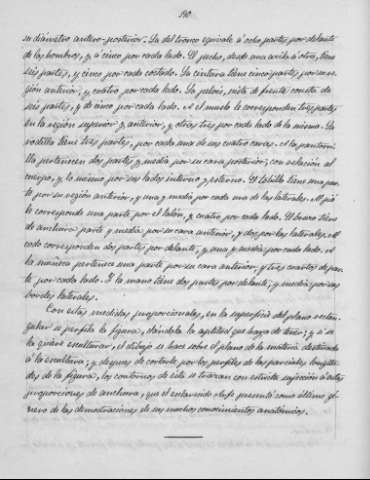 50
su diámetro antero-posterior. La del tronco equivale á ocho partes por delante
de los hombros, y á cinco por cada lado. El pecho, desde una axila á otra, tiene
seis partes, y cinco por cada costado. La cintura tiene cinco partes por su re-
gión anterior, y cuatro por cada lado. La pelvis, vista de frente consta de
seis partes, y de cinco por cada lado. Al muslo le corresponden tres partes
en la región superior y anterior, y otras tres por cada lado de la misma. La
rodilla tiene tres partes, por cada una de sus cuatro caras. A la pantorri-
lla pertenecen dos partes y media por su cara posterior, con relación al
cuerpo, y lo mismo por sus lados interno y externo. El tobillo tiene una par-
te por su región anterior, y una y media por cada una de las laterales. Al pié
le corresponde una parte por el talón, y cuatro por cada lado. El brazo tiene
de anchura parte y media por su cara anterior, y dos por las laterales. Al
codo corresponden dos partes por delante, y una y media por cada lado. A
la muñeca pertenece una parte por su cara anterior, y tres cuartos de par-
te por cada lado. Y la mano tiene dos partes por delante, y media por sus
bordes laterales.
Con estas medidas proporcionales, en la superficie del plano rectan-
gular se perfila la figura, dándola la aptitud que haya de tener; y si se
la quiere esculturar, el dibujo se hace sobre el plano de la materia destinada
á la escultura; y despues de cortarle por los perfiles de las parciales longitu-
des de la figura, los contornos de esta se trazan con estricta sujeción á estas
proporciones de anchura, que el esclarecido Arfe presentó como último gé-
nero de las demostraciones de sus muchos conocimientos anatómicos.